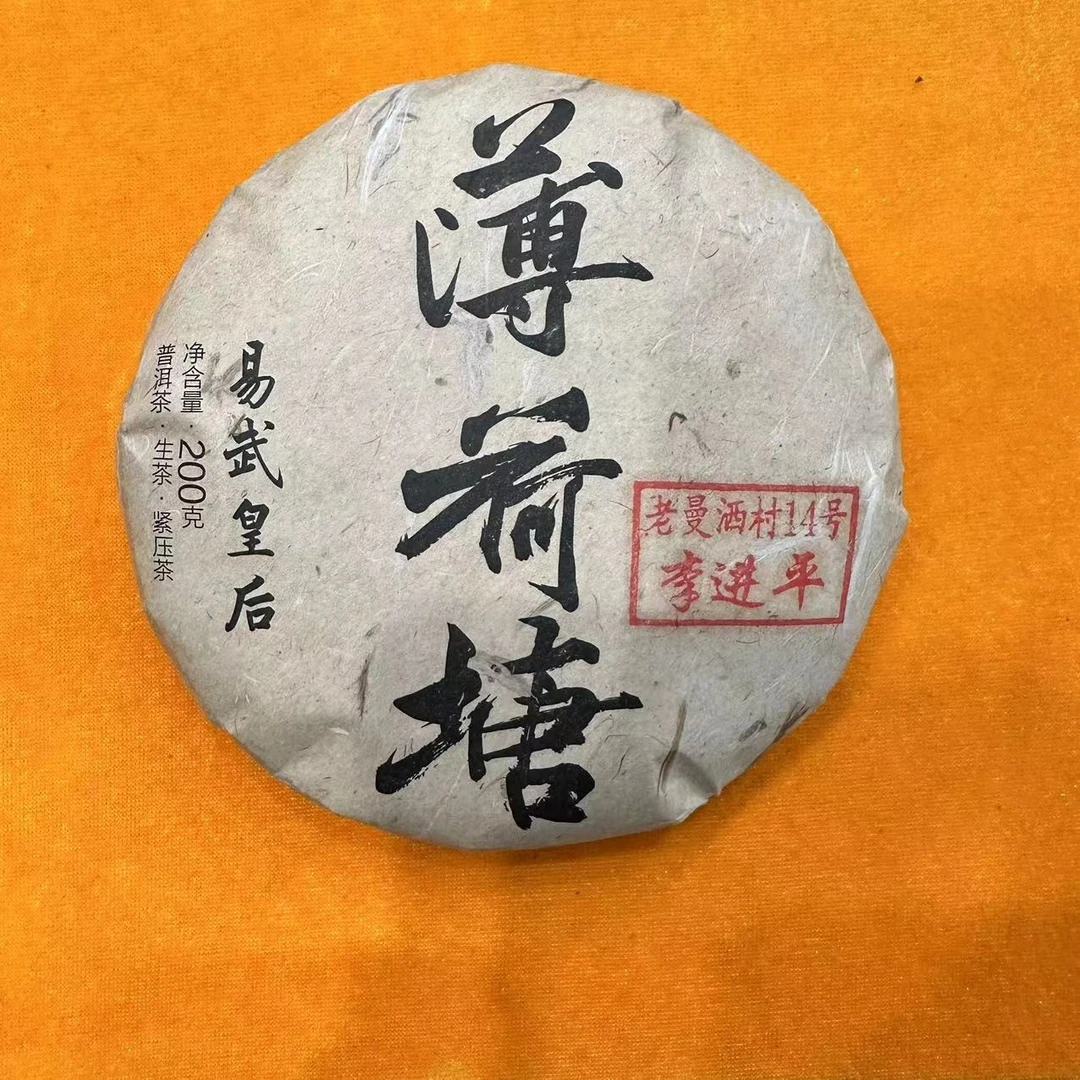 薄荷塘
老曼洒村14号
李进平
易武皇后
净含量·200克
普洱茶·生茶·紧压茶